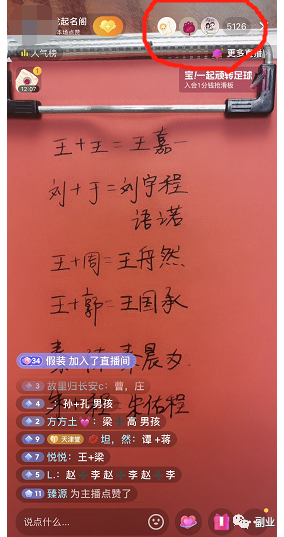 起名阁
本场点赞
5126
人气榜
更多直播
宝/一起顽转足球
入会1分钱抢滑板
12:07
王+王=王嘉一
刘+于=刘宇程
语诺
王+周=王舟然
王+郭=王国承
34 假装 加入了直播间
3 故里归长安c：曹，庄
4 孙+孔 男孩
朱佑程
2 方方土💗：梁➕高 男孩
9 天津堂 💋坦，然：谭 +蒋
7 悦悦：王+梁
5 L.：赵➕李 赵➕李 赵➕李
11 臻源 为主播点赞了
说点什么...
副业